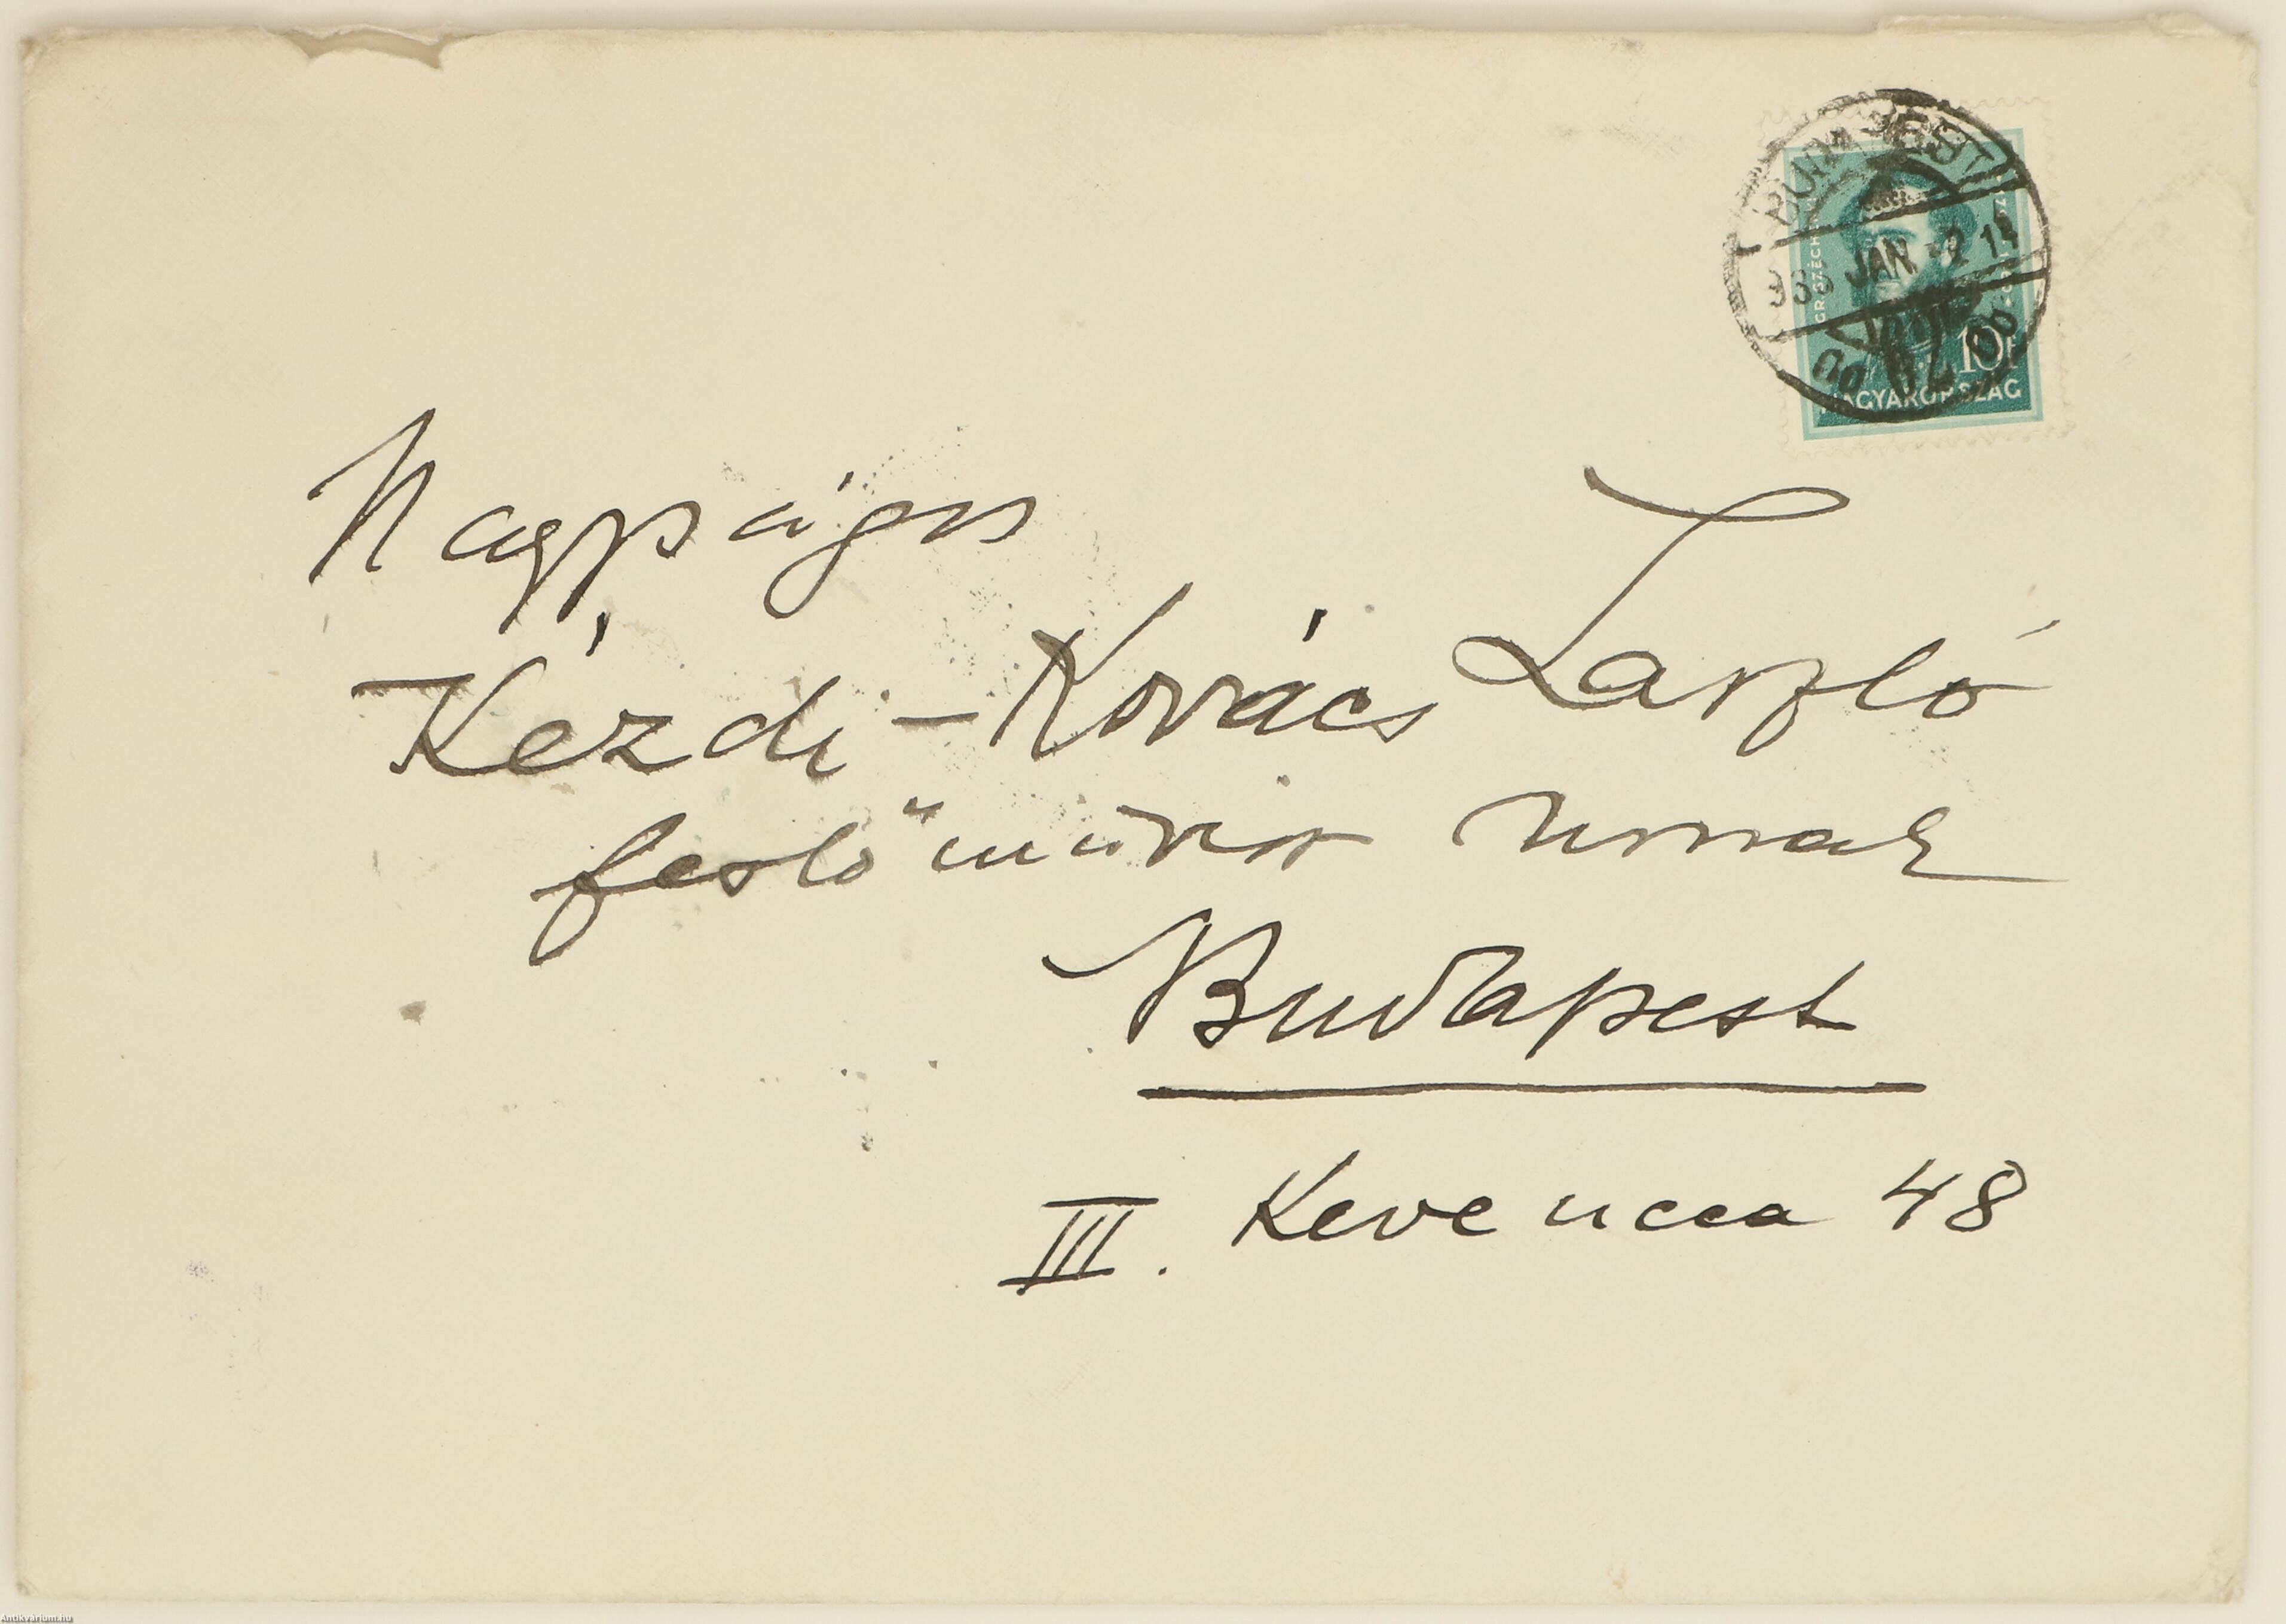 BUDAPEST
JAN. -2
GR. SZÉCHENYI
10f
MAGYARORSZÁG
Nagyságos
Kézdi-Kovács László
festőművész urnak
Budapest
III. Keve ucca 48
Antikvárium.hu